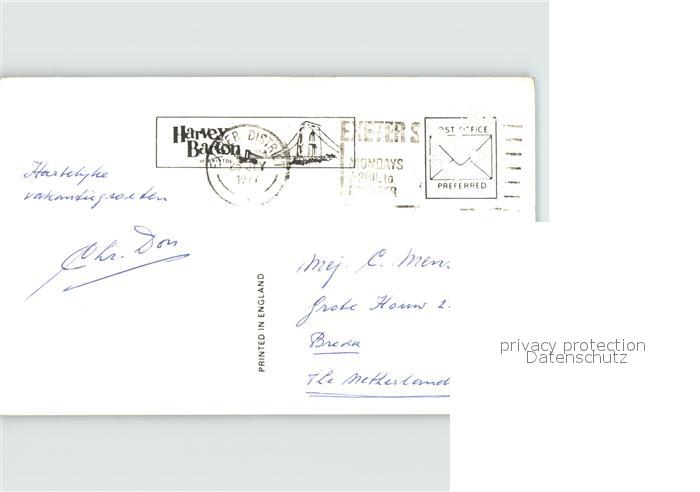 Harvey
Barton
OF BRISTOL
EXETER S
MONDAYS
APRIL to
1977
POST OFFICE
PREFERRED
Hartelyke
vakantiegroeten
Chr. Don
PRINTED IN ENGLAND
Mej. C. Mens
Grote Houw 2
Breda
The Netherland
privacy protection
Datenschutz